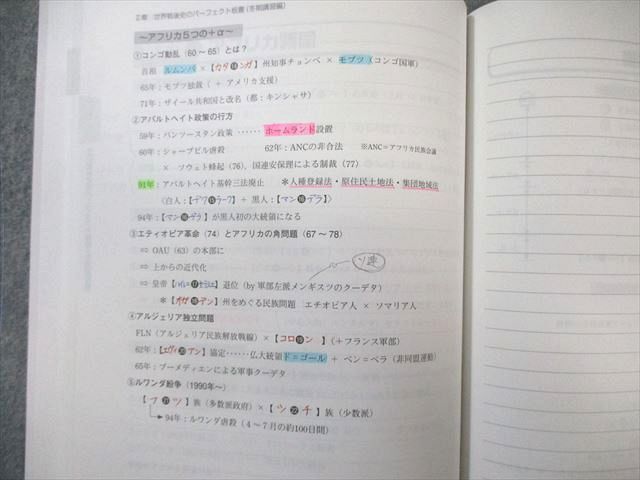 2章 世界戦後史のパーフェクト板書(冬期講習編)
～アフリカ5つの＋α～
①コンゴ動乱（60～65）とは？
首相 ルムンバ ×【カタ⓮ンガ】州知事チョンベ × モブツ（コンゴ国軍）
65年：モブツ独裁（＋アメリカ支援）
71年：ザイール共和国と改名（都：キンシャサ）
②アパルトヘイト政策の行方
59年：バンツースタン政策 …… ホームランド設置
60年：シャープビル虐殺 62年：ANCの非合法 ※ANC＝アフリカ民族会議
× ソウェト蜂起（76），国連安保理による制裁（77）
91年：アパルトヘイト基幹三法廃止 ＊人種登録法・原住民土地法・集団地域法
〈白人：【デク⓯ラーク】＋ 黒人：【マン⓰デラ】〉
94年：【マン⓰デラ】が黒人初の大統領になる
③エティオピア革命（74）とアフリカの角問題（67～78）
⇨ OAU（63）の本部に
⇨ 上からの近代化 ソ連
⇨ 皇帝【ハイレ⓱セラシエ】退位（by 軍部左派メンギスツのクーデタ）
＊【オガ⓲デン】州をめぐる民族問題 エチオピア人 × ソマリア人
④アルジェリア独立問題
FLN（アルジェリア民族解放戦線）×【コロ⓳ン】（＋フランス軍部）
62年：【エヴィ⓴アン】協定……仏大統領ド＝ゴール ＋ ベン＝ベラ（非同盟運動）
65年：ブーメディエンによる軍事クーデタ
⑤ルワンダ紛争（1990年～）
【フ㉑ツ】族（多数派政府）×【ツ㉒チ】族（少数派）
94年：ルワンダ虐殺（4～7月の約100日間）